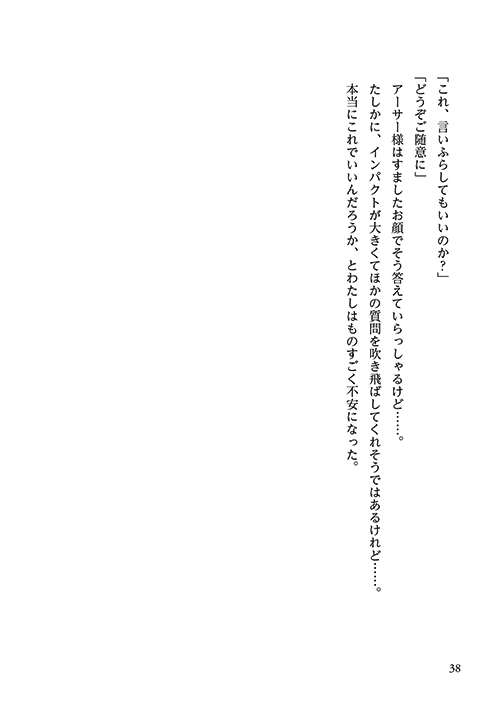 「これ、言いふらしてもいいのか？」
「どうぞご随意に」
　アーサー様はすましたお顔でそう答えていらっしゃるけど……。
　たしかに、インパクトが大きくてほかの質問を吹き飛ばしてくれそうではあるけれど……。
　本当にこれでいいんだろうか、とわたしはものすごく不安になった。
38